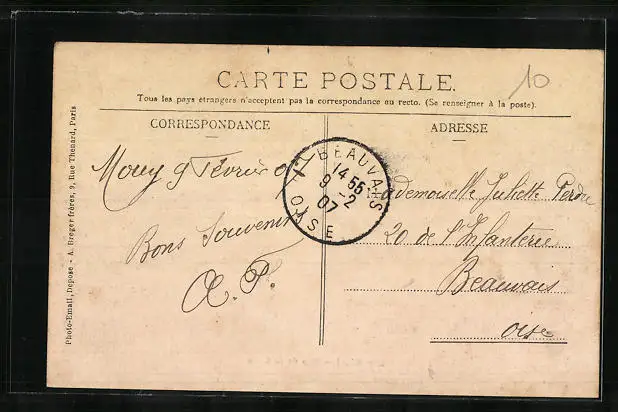 10
CARTE POSTALE.
Tous les pays étrangers n'acceptent pas la correspondance au recto. (Se renseigner à la poste).
CORRESPONDANCE
Mouy 9 Février 07
Bons Souvenirs
A. P.
BEAUVAIS
14 55
9 -2
07
OISE
ADRESSE
Mademoiselle Juliette
20 de l'Infanterie
Beauvais
Oise
Photo-Email, Depose - A. Breger frères, 9, Rue Thenard, Paris